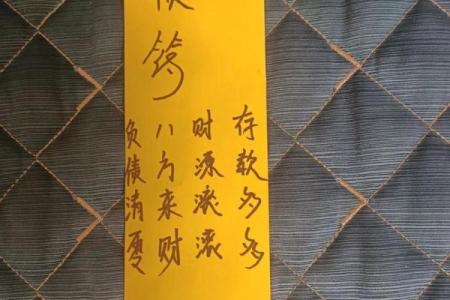 存款多多
财源滚滚
八方来财
负债清